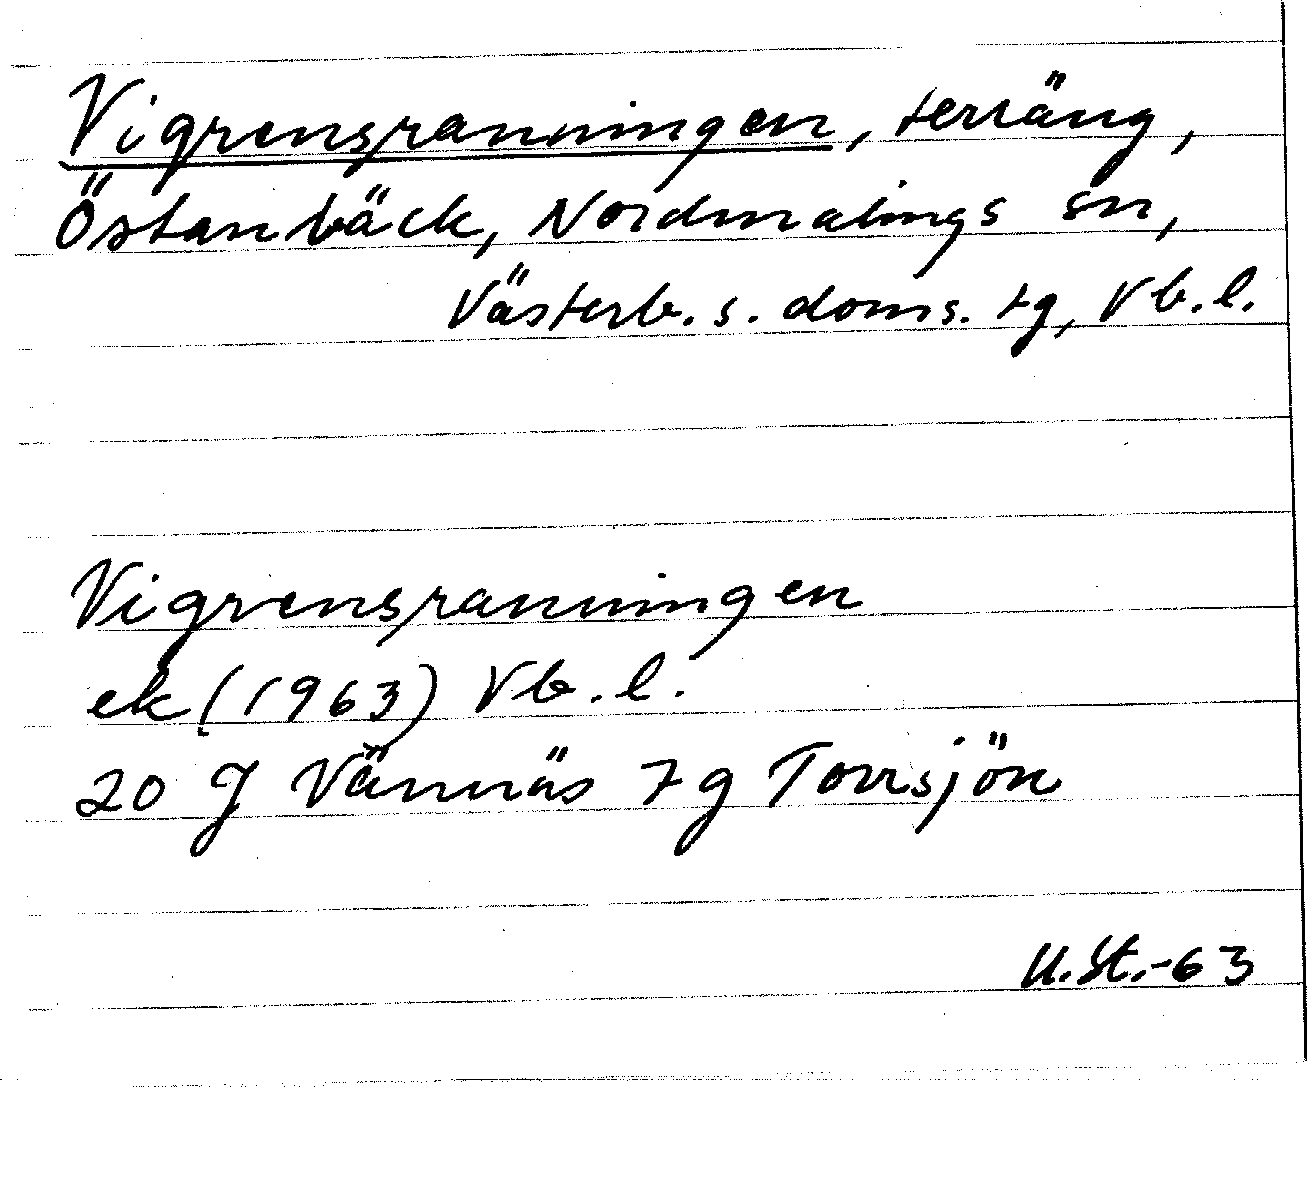 Vigrensranningen, terräng,
Östanbäck, Nordmalings sn,
Västerb. s. doms. tg, Vb.l.
Vigrensranningen
ek (1963) Vb.l.
20 J Vännäs 7g Torrsjön
U.St.-63